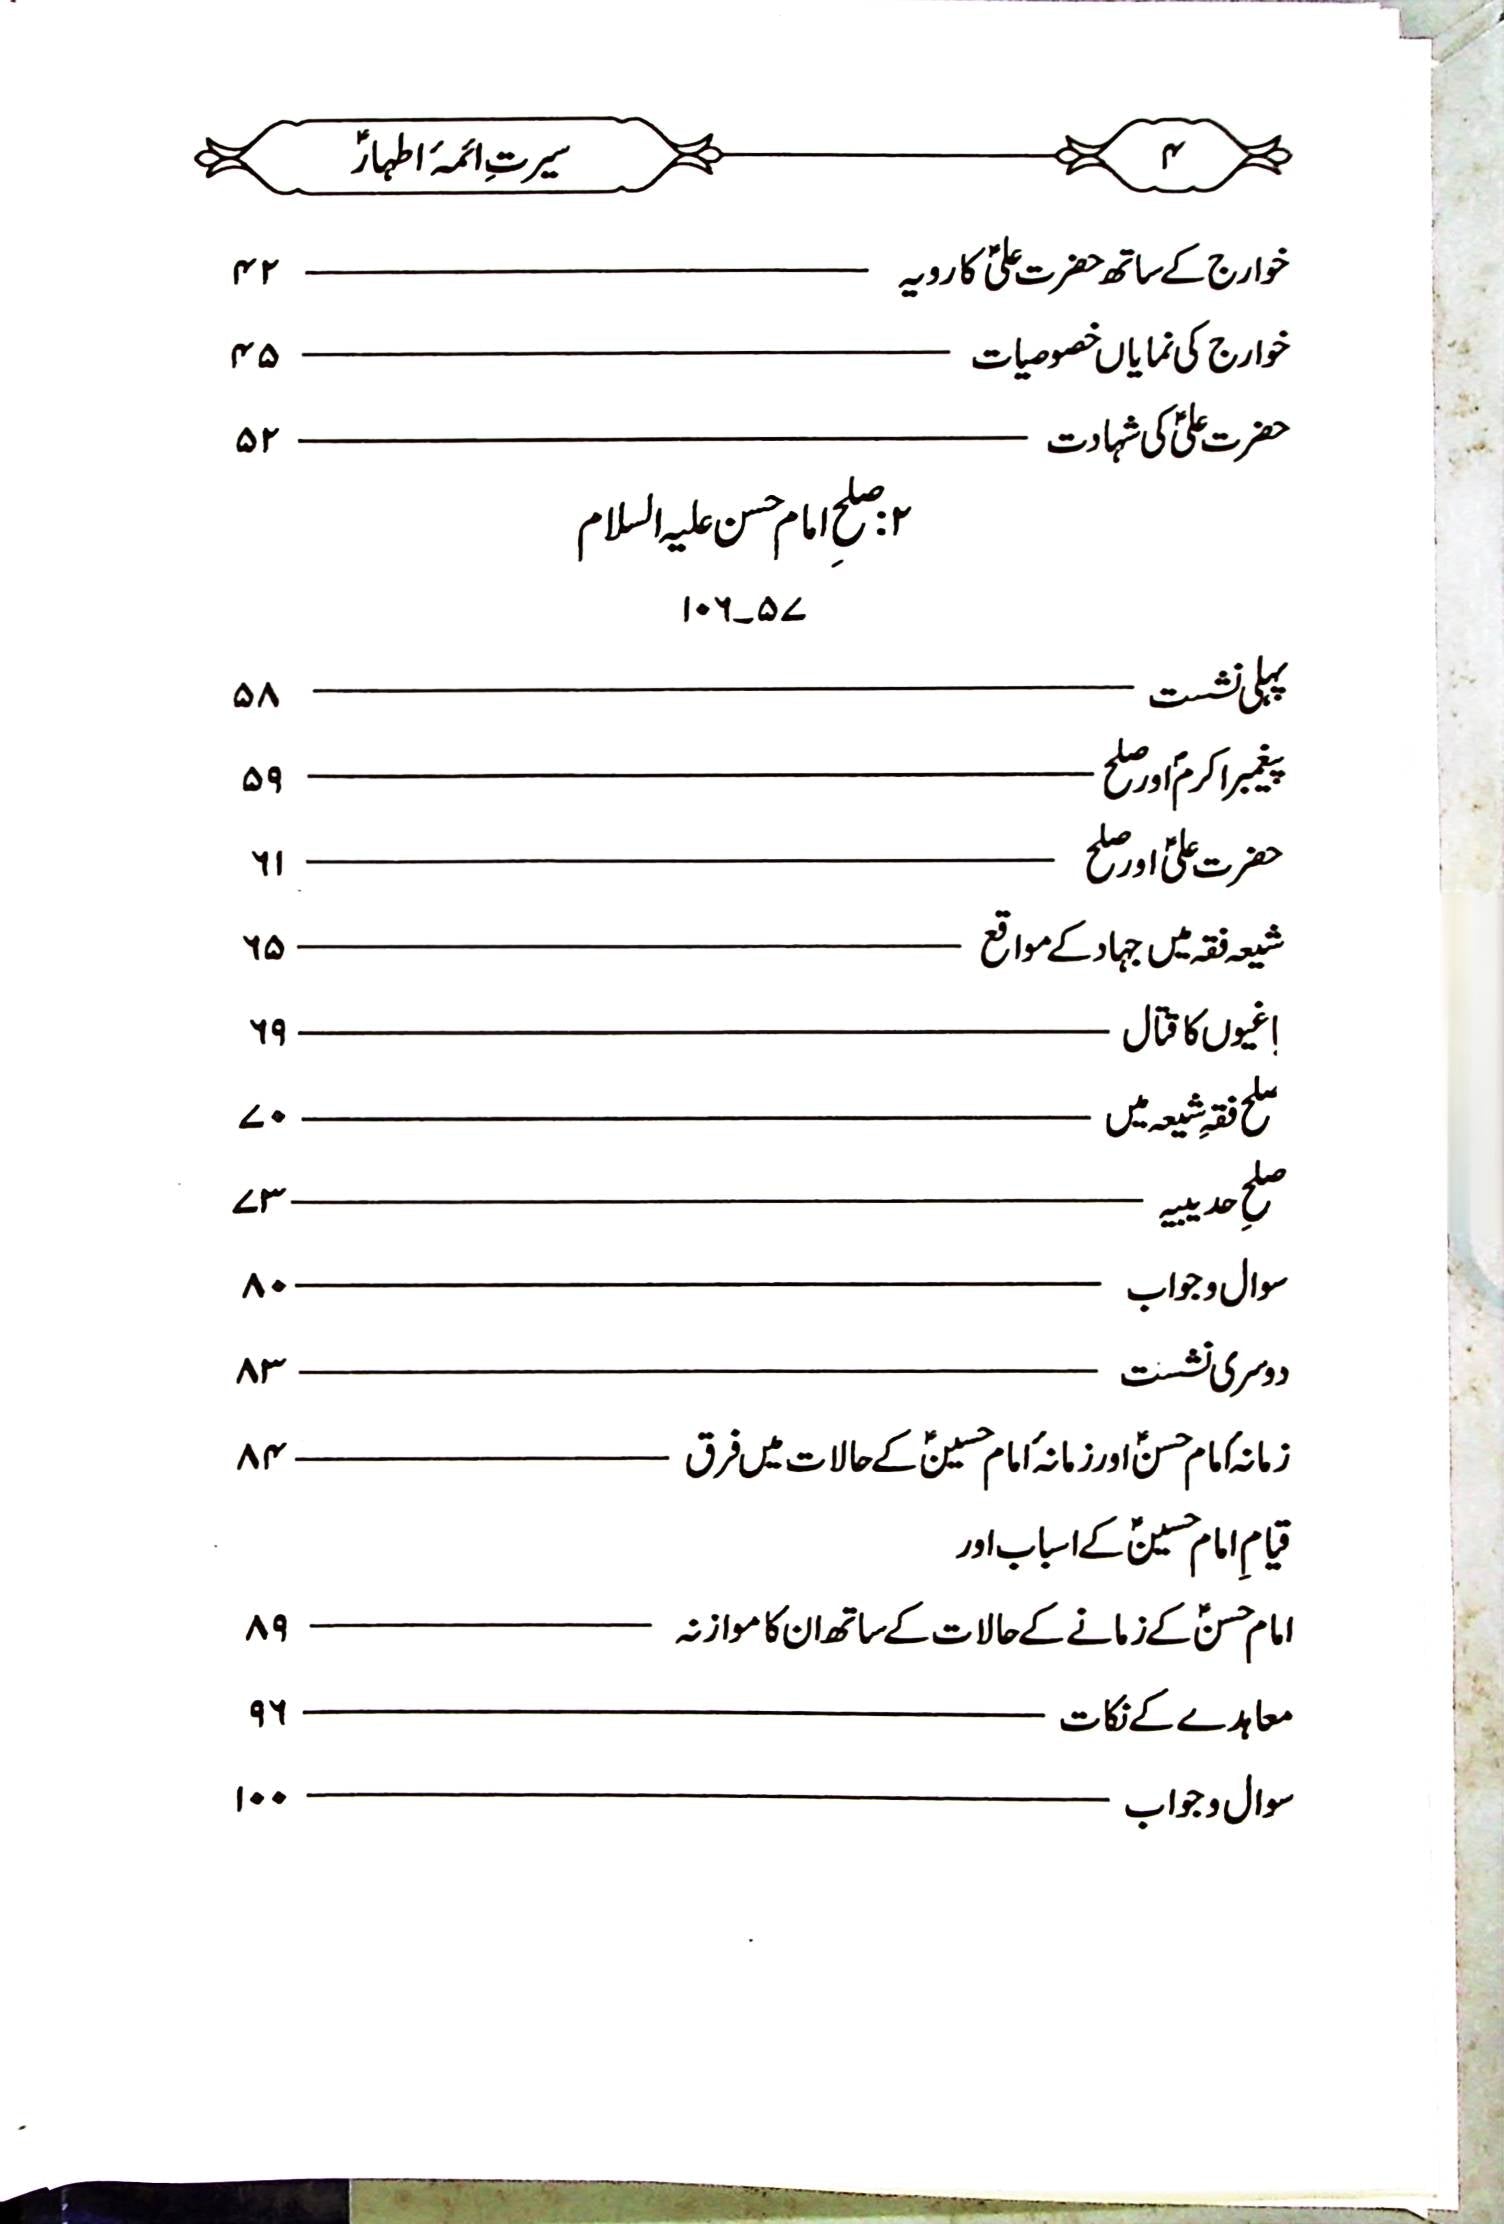 ۴ سیرتِ ائمۂ اطہارؑ
خوارج کے ساتھ حضرت علیؑ کا رویہ ۴۲
خوارج کی نمایاں خصوصیات ۴۵
حضرت علیؑ کی شہادت ۵۲
۲: صلحِ امام حسن علیہ السلام
۵۷۔۱۰۶
پہلی نشست ۵۸
پیغمبر اکرمؐ اور صلح ۵۹
حضرت علیؑ اور صلح ۶۱
شیعہ فقہ میں جہاد کے مواقع ۶۵
باغیوں کا قتال ۶۹
صلح فقہِ شیعہ میں ۷۰
صلحِ حدیبیہ ۷۳
سوال و جواب ۸۰
دوسری نشست ۸۳
زمانۂ امام حسنؑ اور زمانۂ امام حسینؑ کے حالات میں فرق ۸۴
قیامِ امام حسینؑ کے اسباب اور
امام حسنؑ کے زمانے کے حالات کے ساتھ ان کا موازنہ ۸۹
معاہدے کے نکات ۹۶
سوال و جواب ۱۰۰